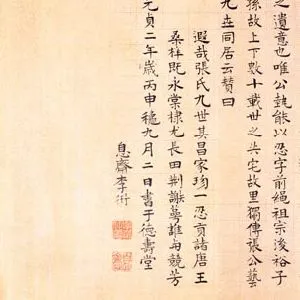 之遺意也唯公能以忍字前繩祖宗後裕子
孫故上下數十載世之共宅故里獨傳張公藝
九世同居云贊曰
遐哉張氏九世其昌家珎一忍貢諸唐王
桑梓既永棠棣尤長田荆謝蕚誰与競芳
元貞二年歲丙申穐九月二日書于德壽堂
息齋李衎